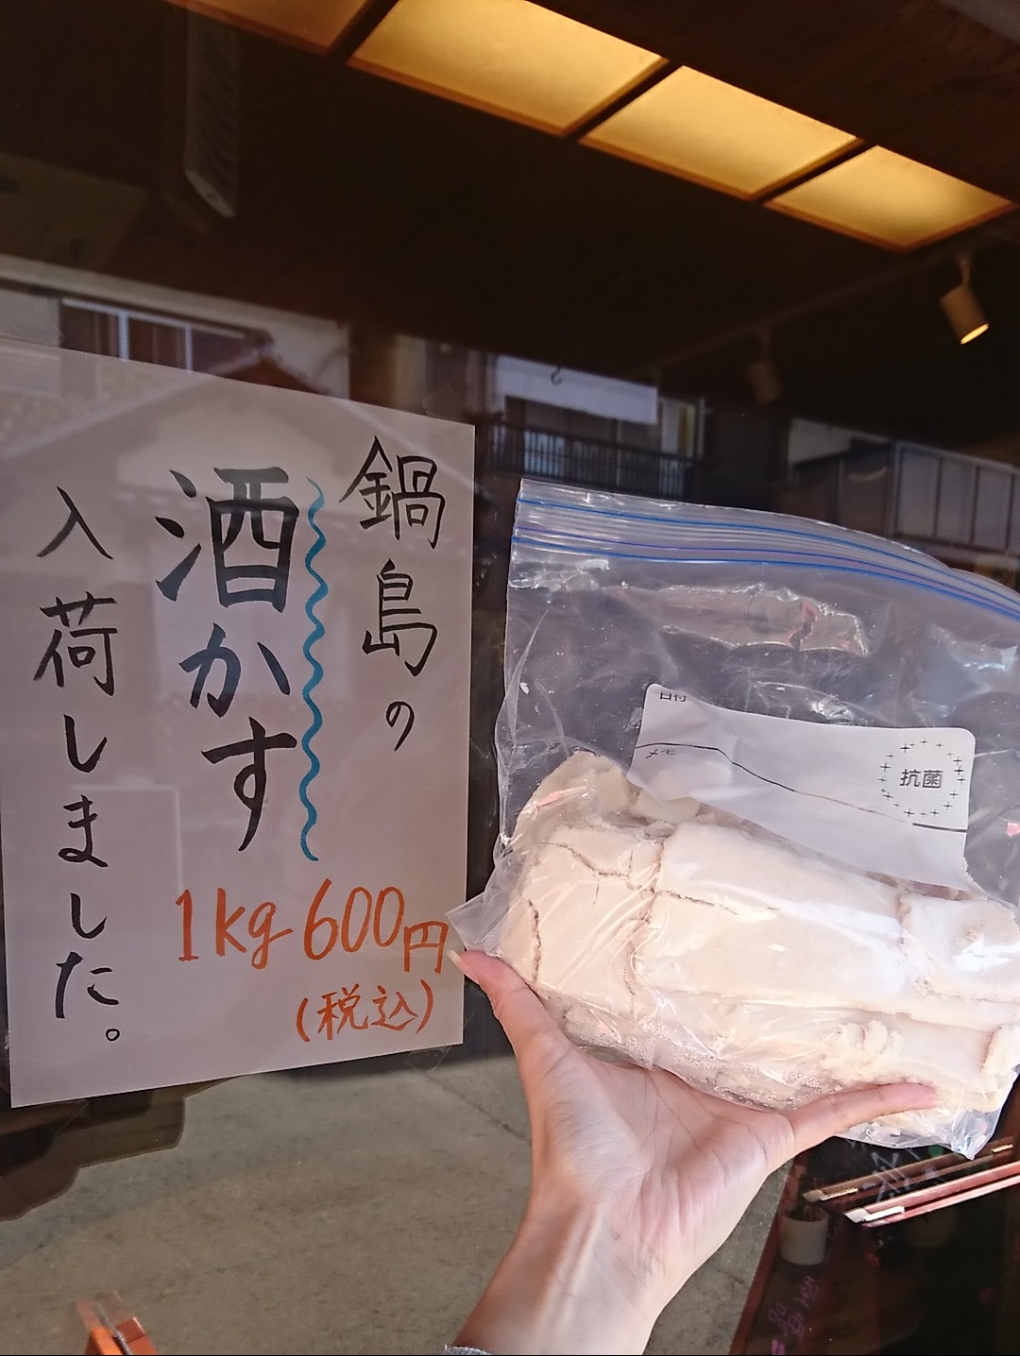 鍋島の
酒かす
入荷しました。
1kg 600円
(税込)
日付
メモ
抗菌